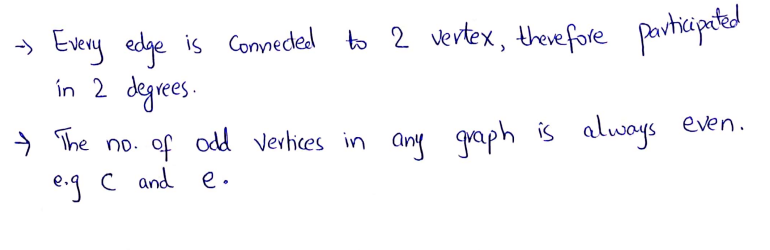 → Every edge is connected to 2 vertex, therefore participated
in 2 degrees.
→ The no. of odd vertices in any graph is always even.
e.g c and e.